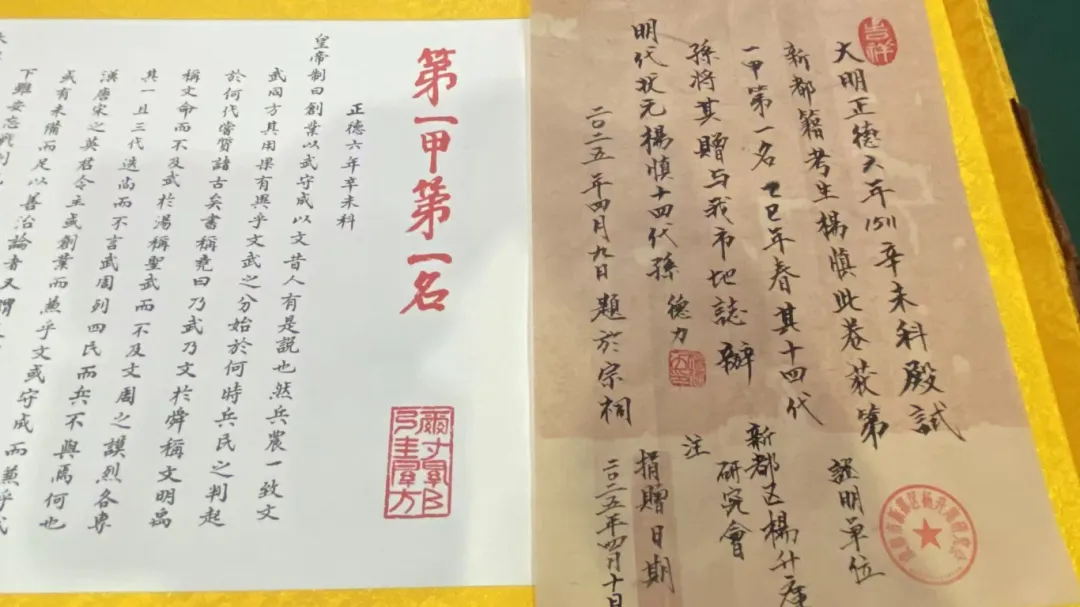 吉祥
大明正德六年1511辛未科殿試
新都籍考生楊慎此卷获第
一甲第一名乙巳年春其十四代
孫將其贈与我市地誌辦
明代状元楊慎十四代孫 德力
二〇二五年四月九日題於宗祠
證明單位
新都区楊升庵
研究會
注
捐贈日期
二〇二五年四月十日
第一甲第一名
正德六年辛未科
皇帝制曰創業以武守成以文昔人有是説也然兵農一致文
武同方其用果有與乎文武之分始於何時兵民之判起
於何代嘗質諸古矣書稱堯曰乃武乃文於舜稱文明禹
稱文命而不及武於湯稱聖武而不及文周之謨烈各専
其一且三代迭尚而不言武周列四民而兵不與焉何也
漢唐宋之英君令主或創業而兼乎文或守成而兼乎武
或有未備而足以善治論者又謂
下雖安忘戰則